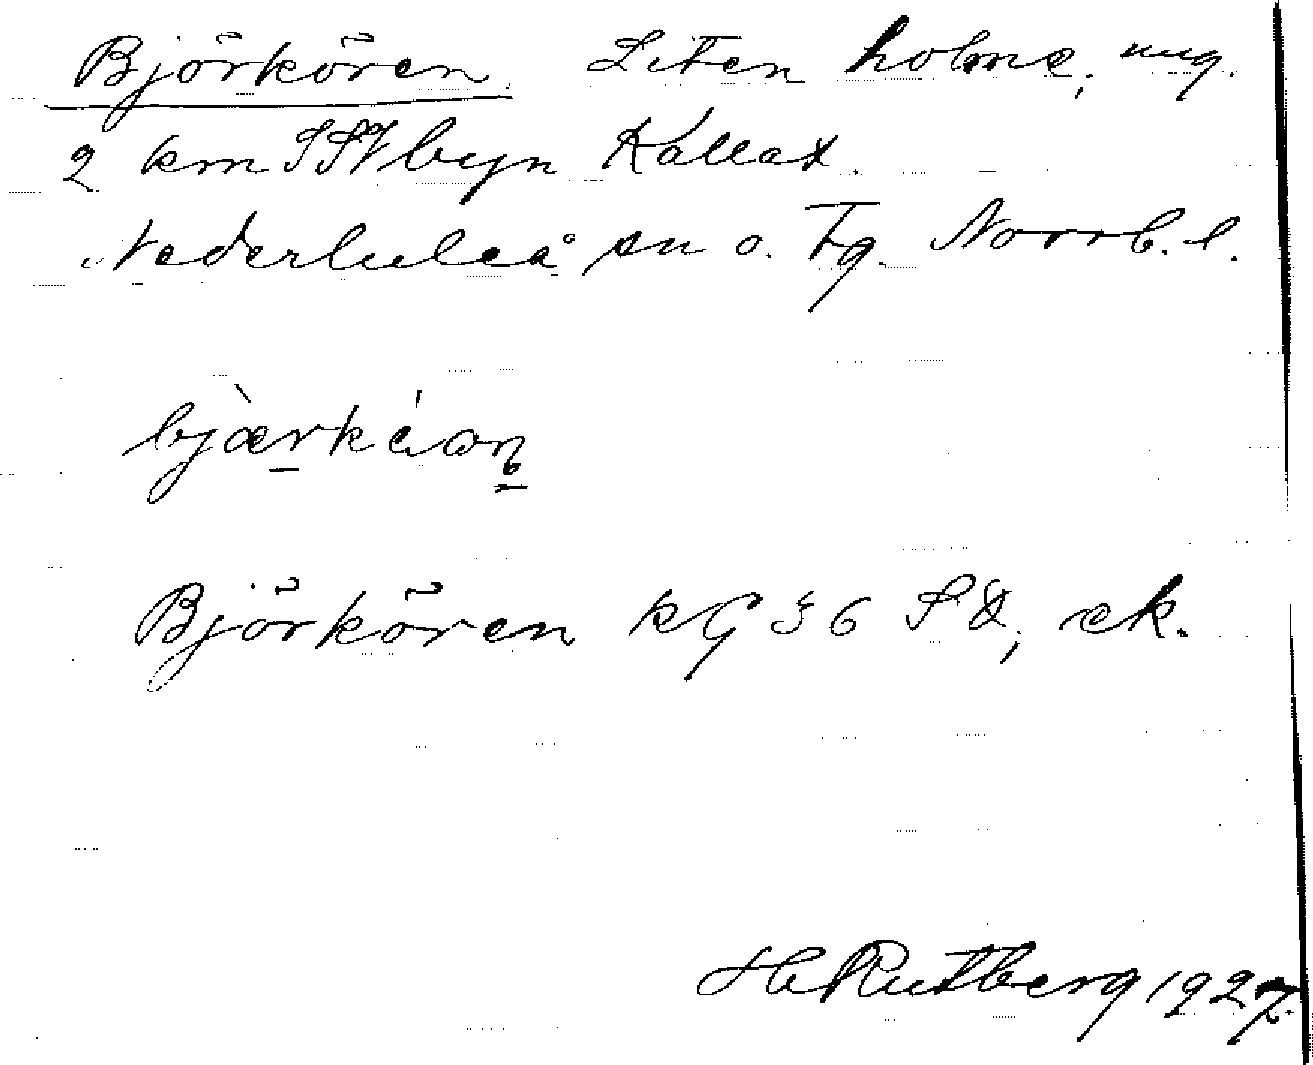 Björkören. Liten holme, ung.
2 km SSV byn Kallax.
Nederluleå sn o. Tg. Norrb. l.
Björkören kG 36 SÖ, ek.
H Rutberg 1927.